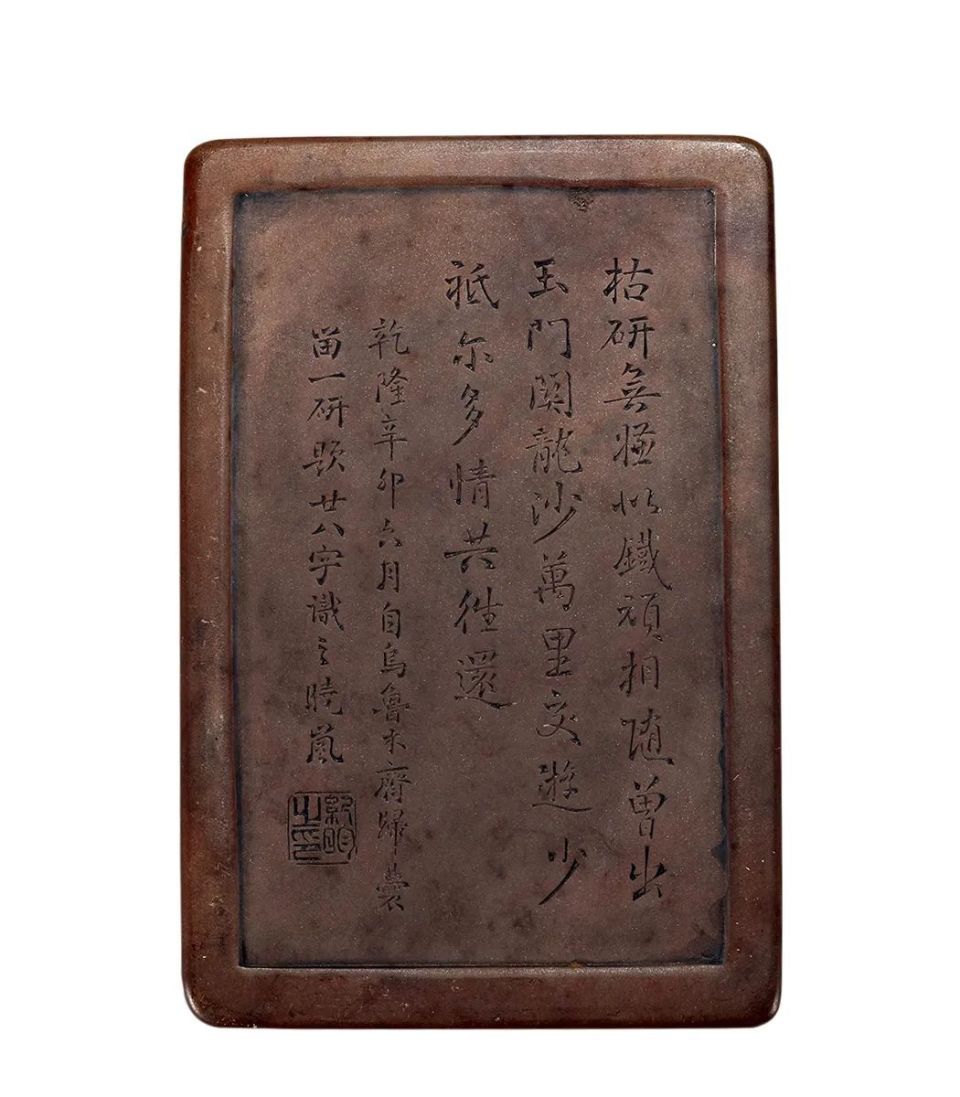 枯研無嫌似鐵頑相随曾出
玉門關龍沙萬里交遊少
祗尔多情共徃還
乾隆辛卯六月自烏魯木齊歸囊
留一研題廿八字識之曉嵐
紀昀之印